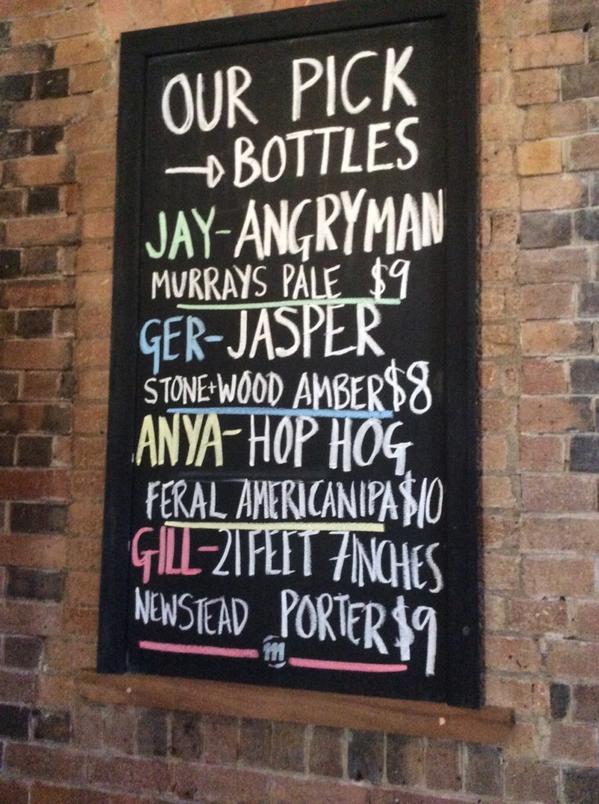 OUR PICK
→ BOTTLES
JAY-ANGRYMAN
MURRAYS PALE $9
GER-JASPER
STONE+WOOD AMBER $8
ANYA-HOP HOG
FERAL AMERICAN IPA $10
GILL-21FEET 7INCHES
NEWSTEAD PORTER $9
m